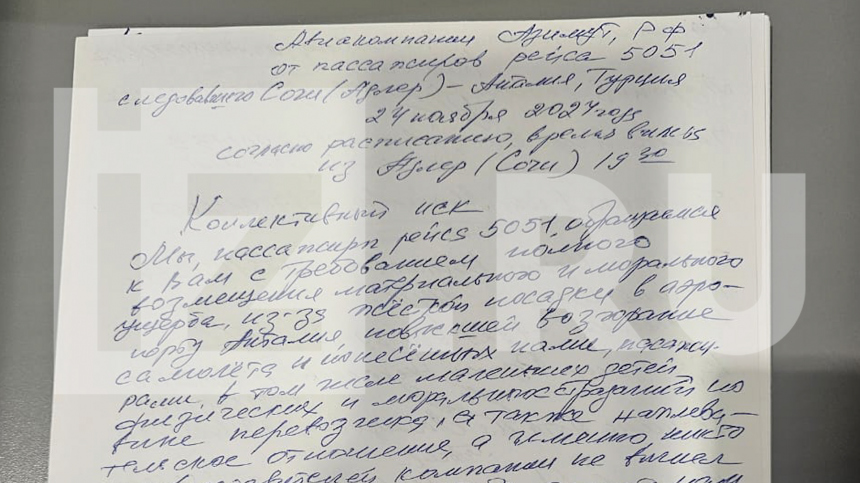 Авиакомпании Азимут, РФ
от пассажиров рейса 5051
следовавшего Сочи (Адлер) – Анталия, Турция
24 ноября 2024 года
согласно расписанию, время вылета
из Адлер (Сочи) 19 30
Коллективный иск
Мы, пассажиры рейса 5051, обращаемся
к Вам с требованием полного
возмещения материального и морального
ущерба, из-за жёсткой посадки в аэро-
порту Анталия, повлекшей возгорание
самолёта и понесённых нами, пассажи-
рами, в том числе маленьких детей
физических и моральных страданий по
вине перевозчика, а также наплева-
тельское отношение, а именно, никто
из представителей компании не вышел
iz.RU